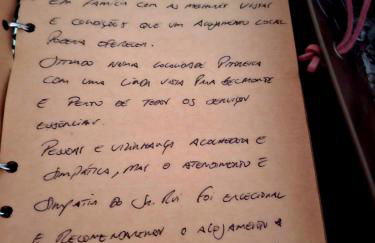 EM FAMÍLIA COM AS MELHORES VISTAS
E CONDIÇÕES QUE UM ALOJAMENTO LOCAL
PODERIA OFERECER.
SITUADO NUMA LOCALIDADE PITORESCA
COM UMA LINDA VISTA PARA BELMONTE
E PERTO DE TODOS OS SERVIÇOS
ESSENCIAIS.
PESSOAS E VIZINHANÇA ACOLHEDORA E
SIMPÁTICA, MAS O ATENDIMENTO E
SIMPATIA DO SR. RUI FOI EXCECIONAL
E RECOMENDAREMOS O ALOJAMENTO A